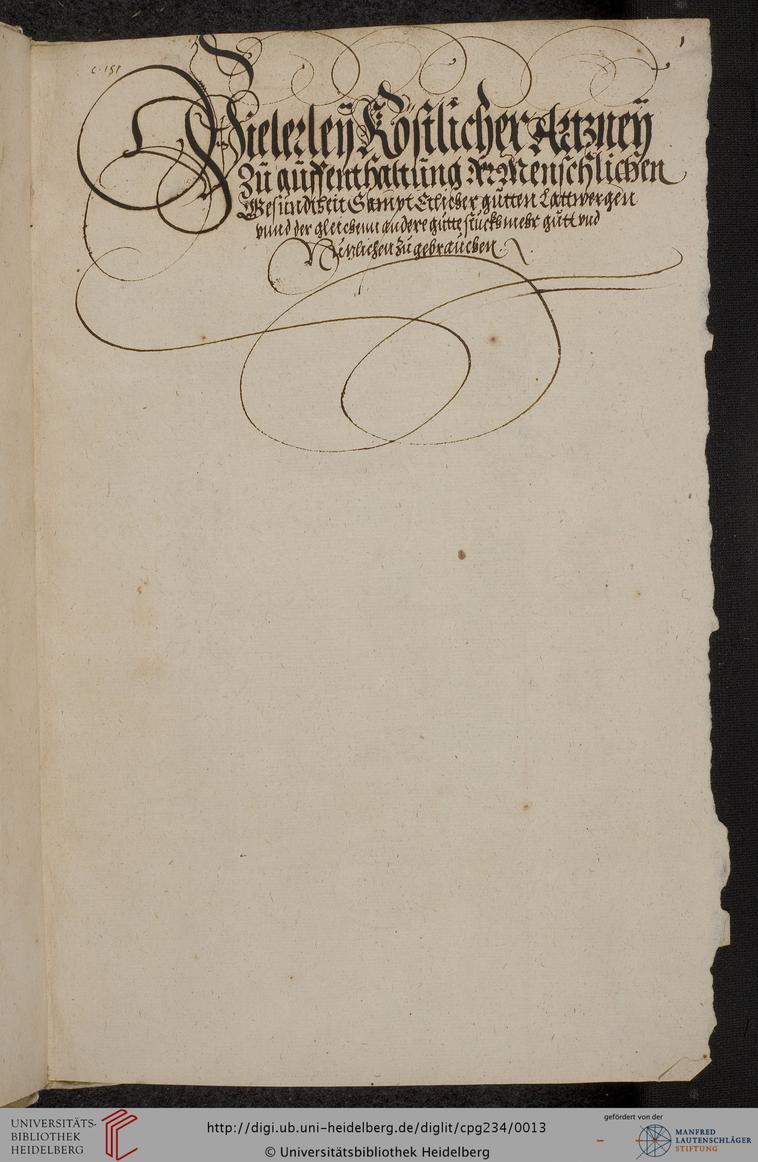 c. 151
1
Vielerleÿ Köstlicher Artzneÿ
Zu auffenthaltung der Menschlichen
Gesundtheit Sampt Etlicher gutten Lattwergen
vnnd der gleichenn andere gutte stückh mehr gutt vnd
Nützlichen zu gebrauchen.
UNIVERSITÄTS-
BIBLIOTHEK
HEIDELBERG
http://digi.ub.uni-heidelberg.de/diglit/cpg234/0013
© Universitätsbibliothek Heidelberg
gefördert von der
MANFRED
LAUTENSCHLÄGER
STIFTUNG